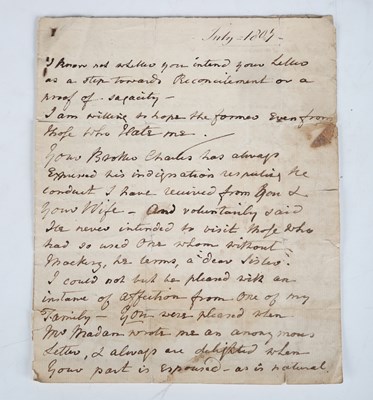 July - 1807 -
I know not whether you intend your Letter
as a step towards Reconcilement or a
proof of sagacity -
I am willing to hope the former Even from
those who Hate me.
Your Brother Charles has always
Expressed his indignation respecting the
conduct I have received from You &
Your Wife - And voluntarily said
He never intended to visit those who
had so used One whom without
Mockery, he terms, a "dear Sister".
I could not but be pleased with an
instance of affection from One of my
Family - You were pleased when
Mr Madan wrote me an anonymous
Letter, & always are delighted when
Your part is espoused - as is natural